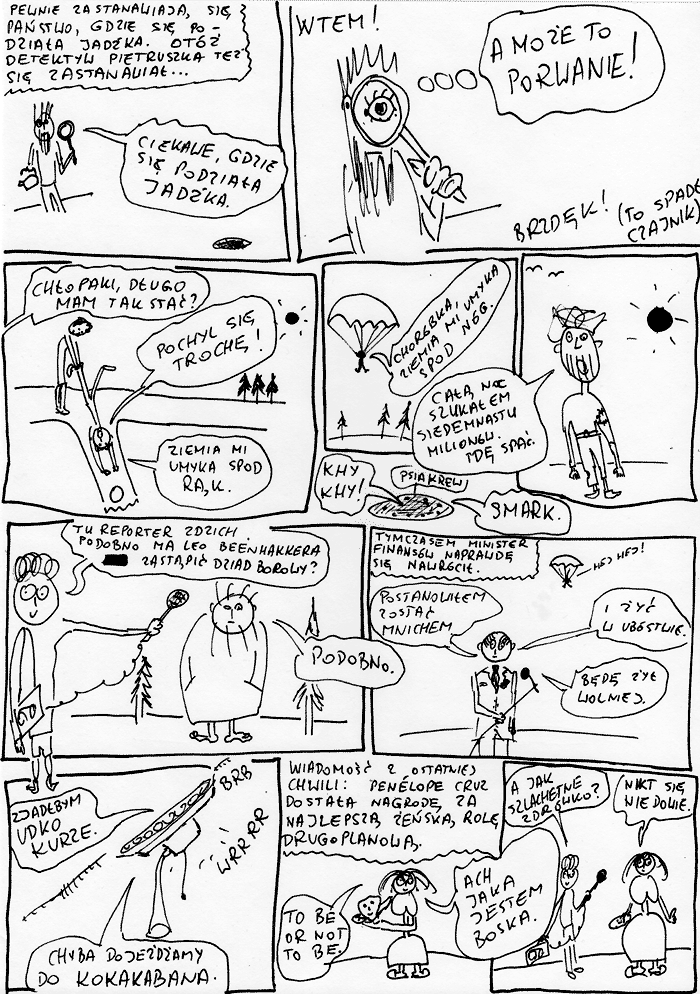 PEWNIE ZASTANAWIAJĄ SIĘ
PAŃSTWO, GDZIE SIĘ PO-
DZIAŁA JADŹKA. OTÓŻ
DETEKTYW PIETRUSZKA TEŻ
SIĘ ZASTANAWIAŁ...
CIEKAWE, GDZIE
SIĘ PODZIAŁA
JADŹKA.
WTEM!
A MOŻE TO
PORWANIE!
BRZDĘK!
(TO SPADŁ
CZAJNIK)
CHŁOPAKI, DŁUGO
MAM TAK STAĆ?
POCHYL SIĘ
TROCHĘ!
ZIEMIA MI
UMYKA SPOD
RĄK.
CHOREBKA,
ZIEMIA MI UMYKA
SPOD NÓG.
CAŁĄ NOC
SZUKAŁEM
SIEDEMNASTU
MILIONÓW.
IDĘ SPAĆ.
KHY
KHY!
PSIAKREW
SMARK.
TU REPORTER ZDZICH.
PODOBNO MA LEO BEENHAKKERA
ZASTĄPIĆ DZIAD BOROWY?
PODOBNO.
TYMCZASEM MINISTER
FINANSÓW NAPRAWDĘ
SIĘ NAWRÓCIŁ.
HEJ HEJ!
POSTANOWIŁEM
ZOSTAĆ
MNICHEM
I ŻYĆ
W UBÓSTWIE.
BĘDĘ ŻYŁ
WOLNIEJ.
ZJADŁBYM
UDKO
KURZE.
BRB
WRRRR
CHYBA DOJEŻDŻAMY
DO KOKAKABANA.
WIADOMOŚĆ Z OSTATNIEJ
CHWILI: PENÉLOPE CRUZ
DOSTAŁA NAGRODĘ ZA
NAJLEPSZĄ ŻEŃSKĄ ROLĘ
DRUGOPLANOWĄ.
TO BE
OR NOT
TO BE.
ACH
JAKA
JESTEM
BOSKA.
A JAK
SZLACHETNE
ZDRÓWKO?
NIKT SIĘ
NIE DOWIE.